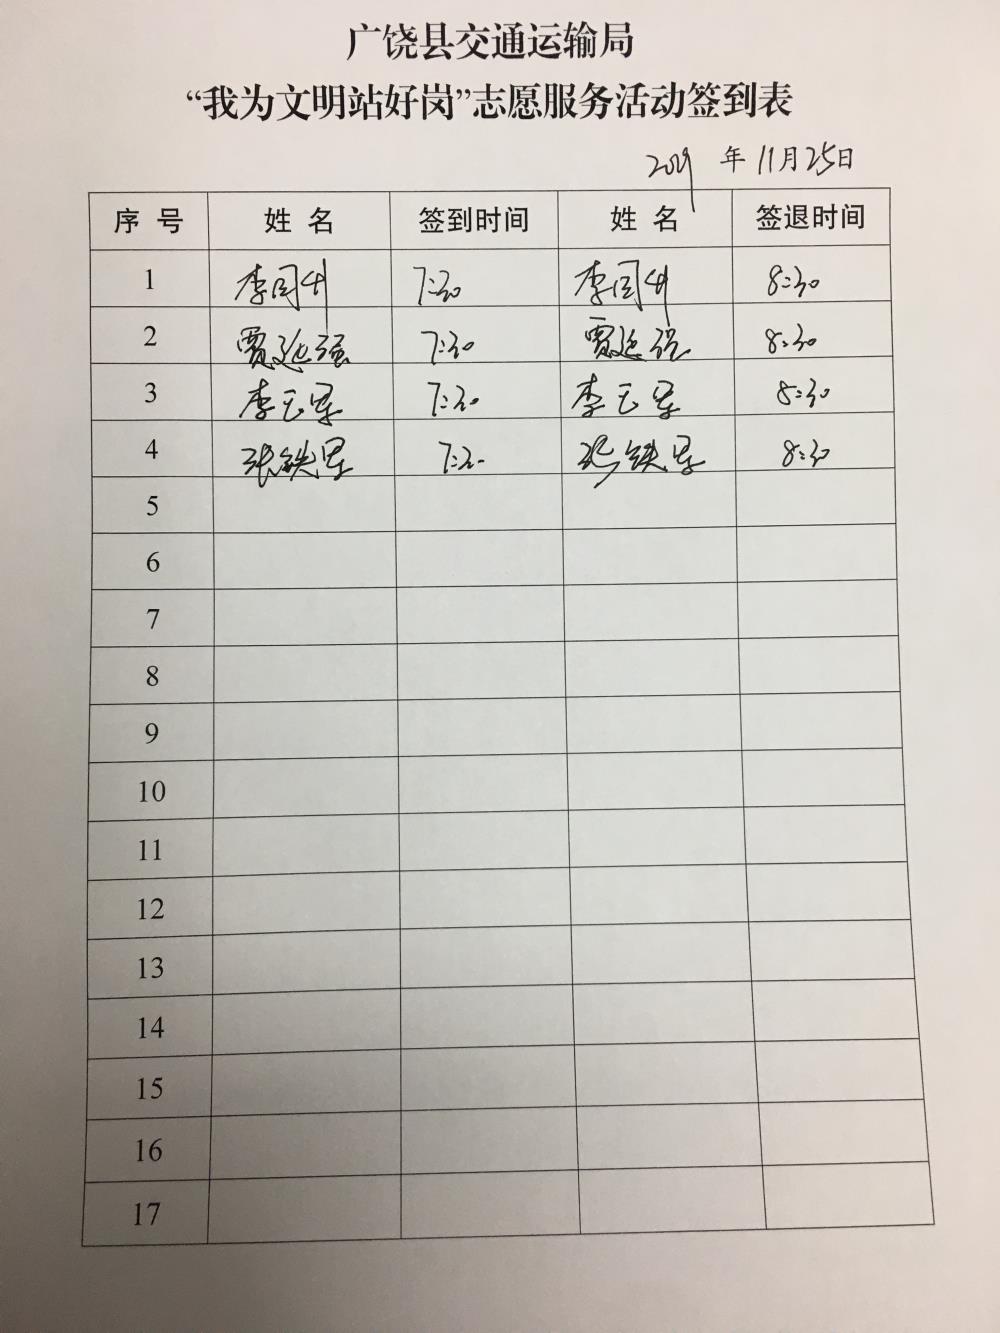 广饶县交通运输局
“我为文明站好岗”志愿服务活动签到表
2019 年 11月25日
序 号 姓 名 签到时间 姓 名 签退时间
1 李同升 7:30 李同升 8:30
2 贾延强 7:30 贾延强 8:30
3 李玉军 7:30 李玉军 8:30
4 张铁军 7:30 张铁军 8:30
5
6
7
8
9
10
11
12
13
14
15
16
17